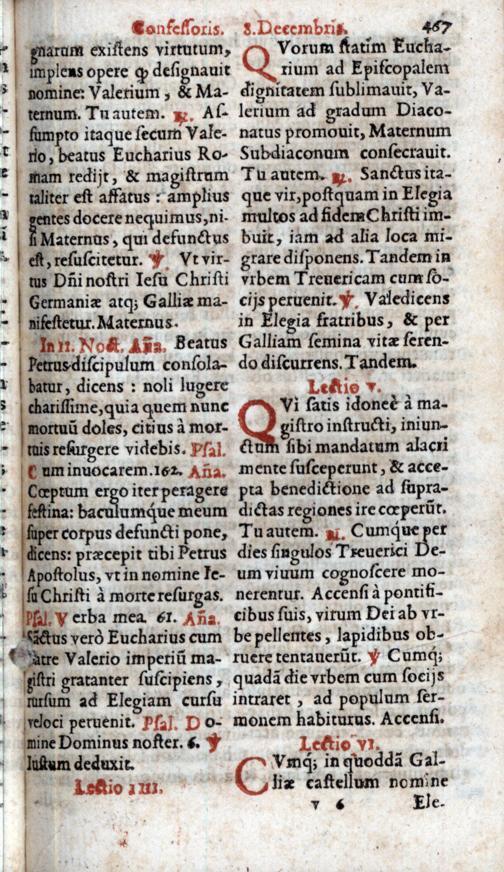 Confessoris. 8. Decembris. 467
gnarum existens virtutum,
implens opere ꝙ designauit
nomine: Valerium, & Ma-
ternum. Tu autem. ℟. As-
sumpto itaque secum Vale-
rio, beatus Eucharius Ro-
mam redijt, & magistrum
taliter est affatus : amplius
gentes docere nequimus, ni-
si Maternus, qui defunctus
est, resuscitetur. ℣ Vt vir-
tus Dñi nostri Iesu Christi
Germaniæ atq; Galliæ ma-
nifestetur. Maternus.
In II. Noct. Aña. Beatus
Petrus discipulum consola-
batur, dicens : noli lugere
charissime, quia quem nunc
mortuũ doles, citius à mor-
tuis resurgere videbis. Psal.
Cum inuocarem. 162. Aña.
Cœptum ergo iter peragere
festina: baculumque meum
super corpus defuncti pone,
dicens: præcepit tibi Petrus
Apostolus, vt in nomine Ie-
su Christi à morte resurgas.
Psal. Verba mea. 61. Aña.
Sãctus verò Eucharius cum
fratre Valerio imperiũ ma-
gistri gratanter suscipiens,
rursum ad Elegiam cursu
veloci peruenit. Psal. Do-
mine Dominus noster. 6. ℣
Iustum deduxit.
Lectio IIII.
QVorum statim Eucha-
rium ad Episcopalem
dignitatem sublimauit, Va-
lerium ad gradum Diaco-
natus promouit, Maternum
Subdiaconum consecrauit.
Tu autem. ℟. Sanctus ita-
que vir, postquam in Elegia
multos ad fidem Christi im-
buit, iam ad alia loca mi-
grare disponens. Tandem in
vrbem Treuericam cum so-
cijs peruenit. ℣. Valedicens
in Elegia fratribus, & per
Galliam semina vitæ seren-
do discurrens. Tandem.
Lectio V.
QVi satis idoneè à ma-
gistro instructi, iniun-
ctum sibi mandatum alacri
mente susceperunt, & acce-
pta benedictione ad supra-
dictas regiones ire cœperũt.
Tu autem. ℟. Cumque per
dies singulos Treuerici De-
um viuum cognoscere mo-
nerentur. Accensi à pontifi-
cibus suis, virum Dei ab vr-
be pellentes, lapidibus ob-
ruere tentauerũt. ℣ Cumq;
quadã die vrbem cum socijs
intraret, ad populum ser-
monem habiturus. Accensi.
Lectio VI.
CVmq; in quoddã Gal-
liæ castellum nomine
v 6 Ele-